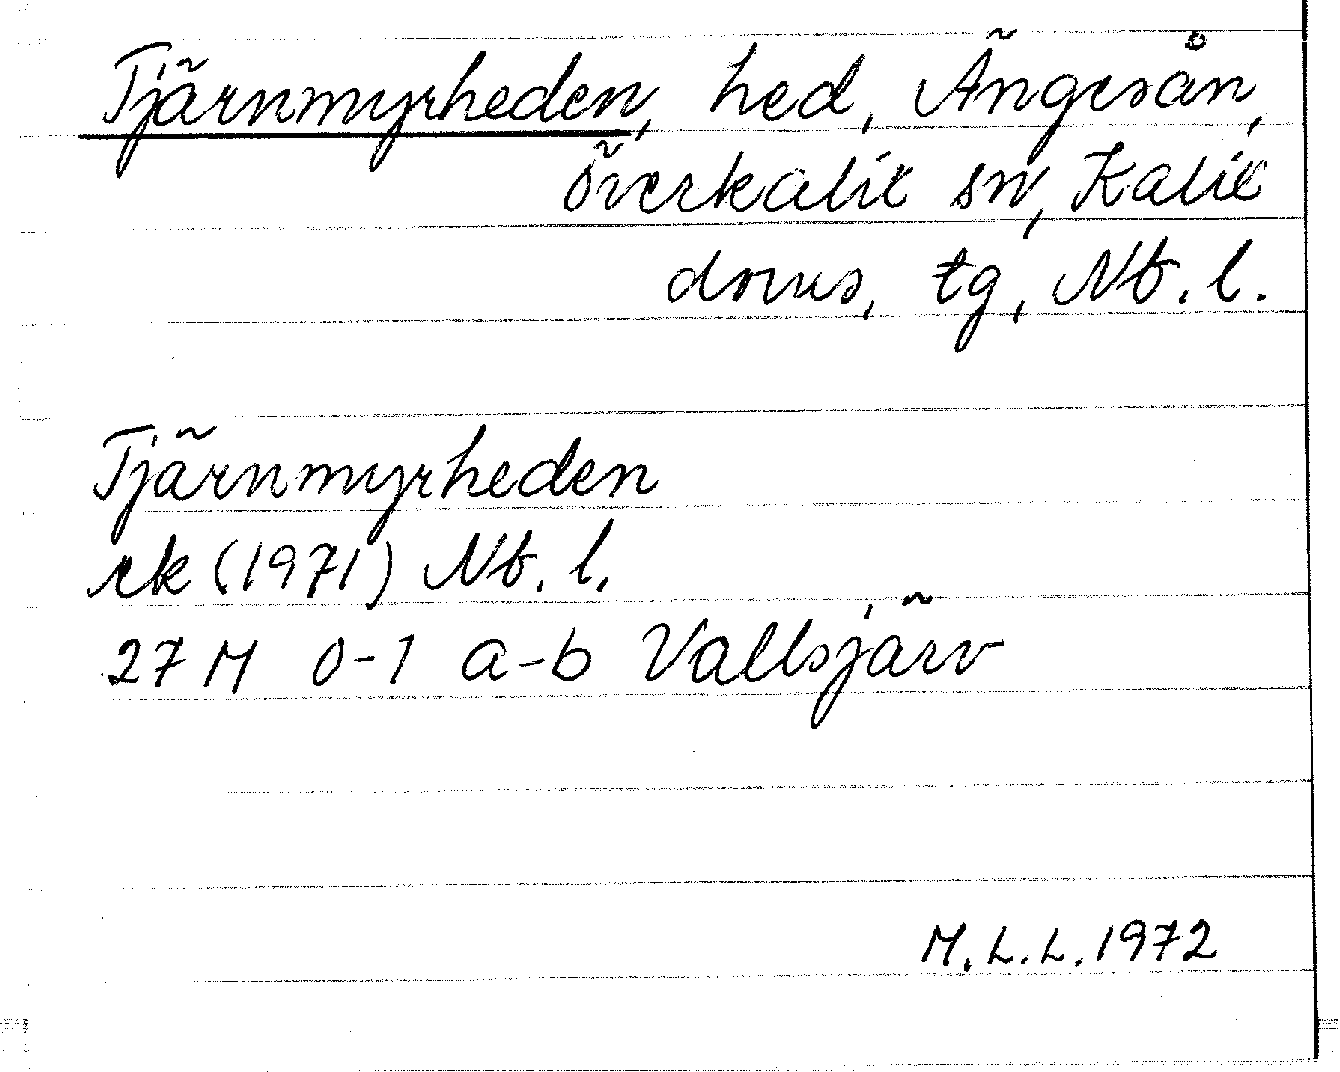 Tjärnmyrheden, hed, Ängesån,
Överkalix sn, Kalix
domus, tg, Nb. l.
Tjärnmyrheden
rk (1971) Nb. l.
27 M 0-1 a-b Vallsjärv
M. L. L. 1972